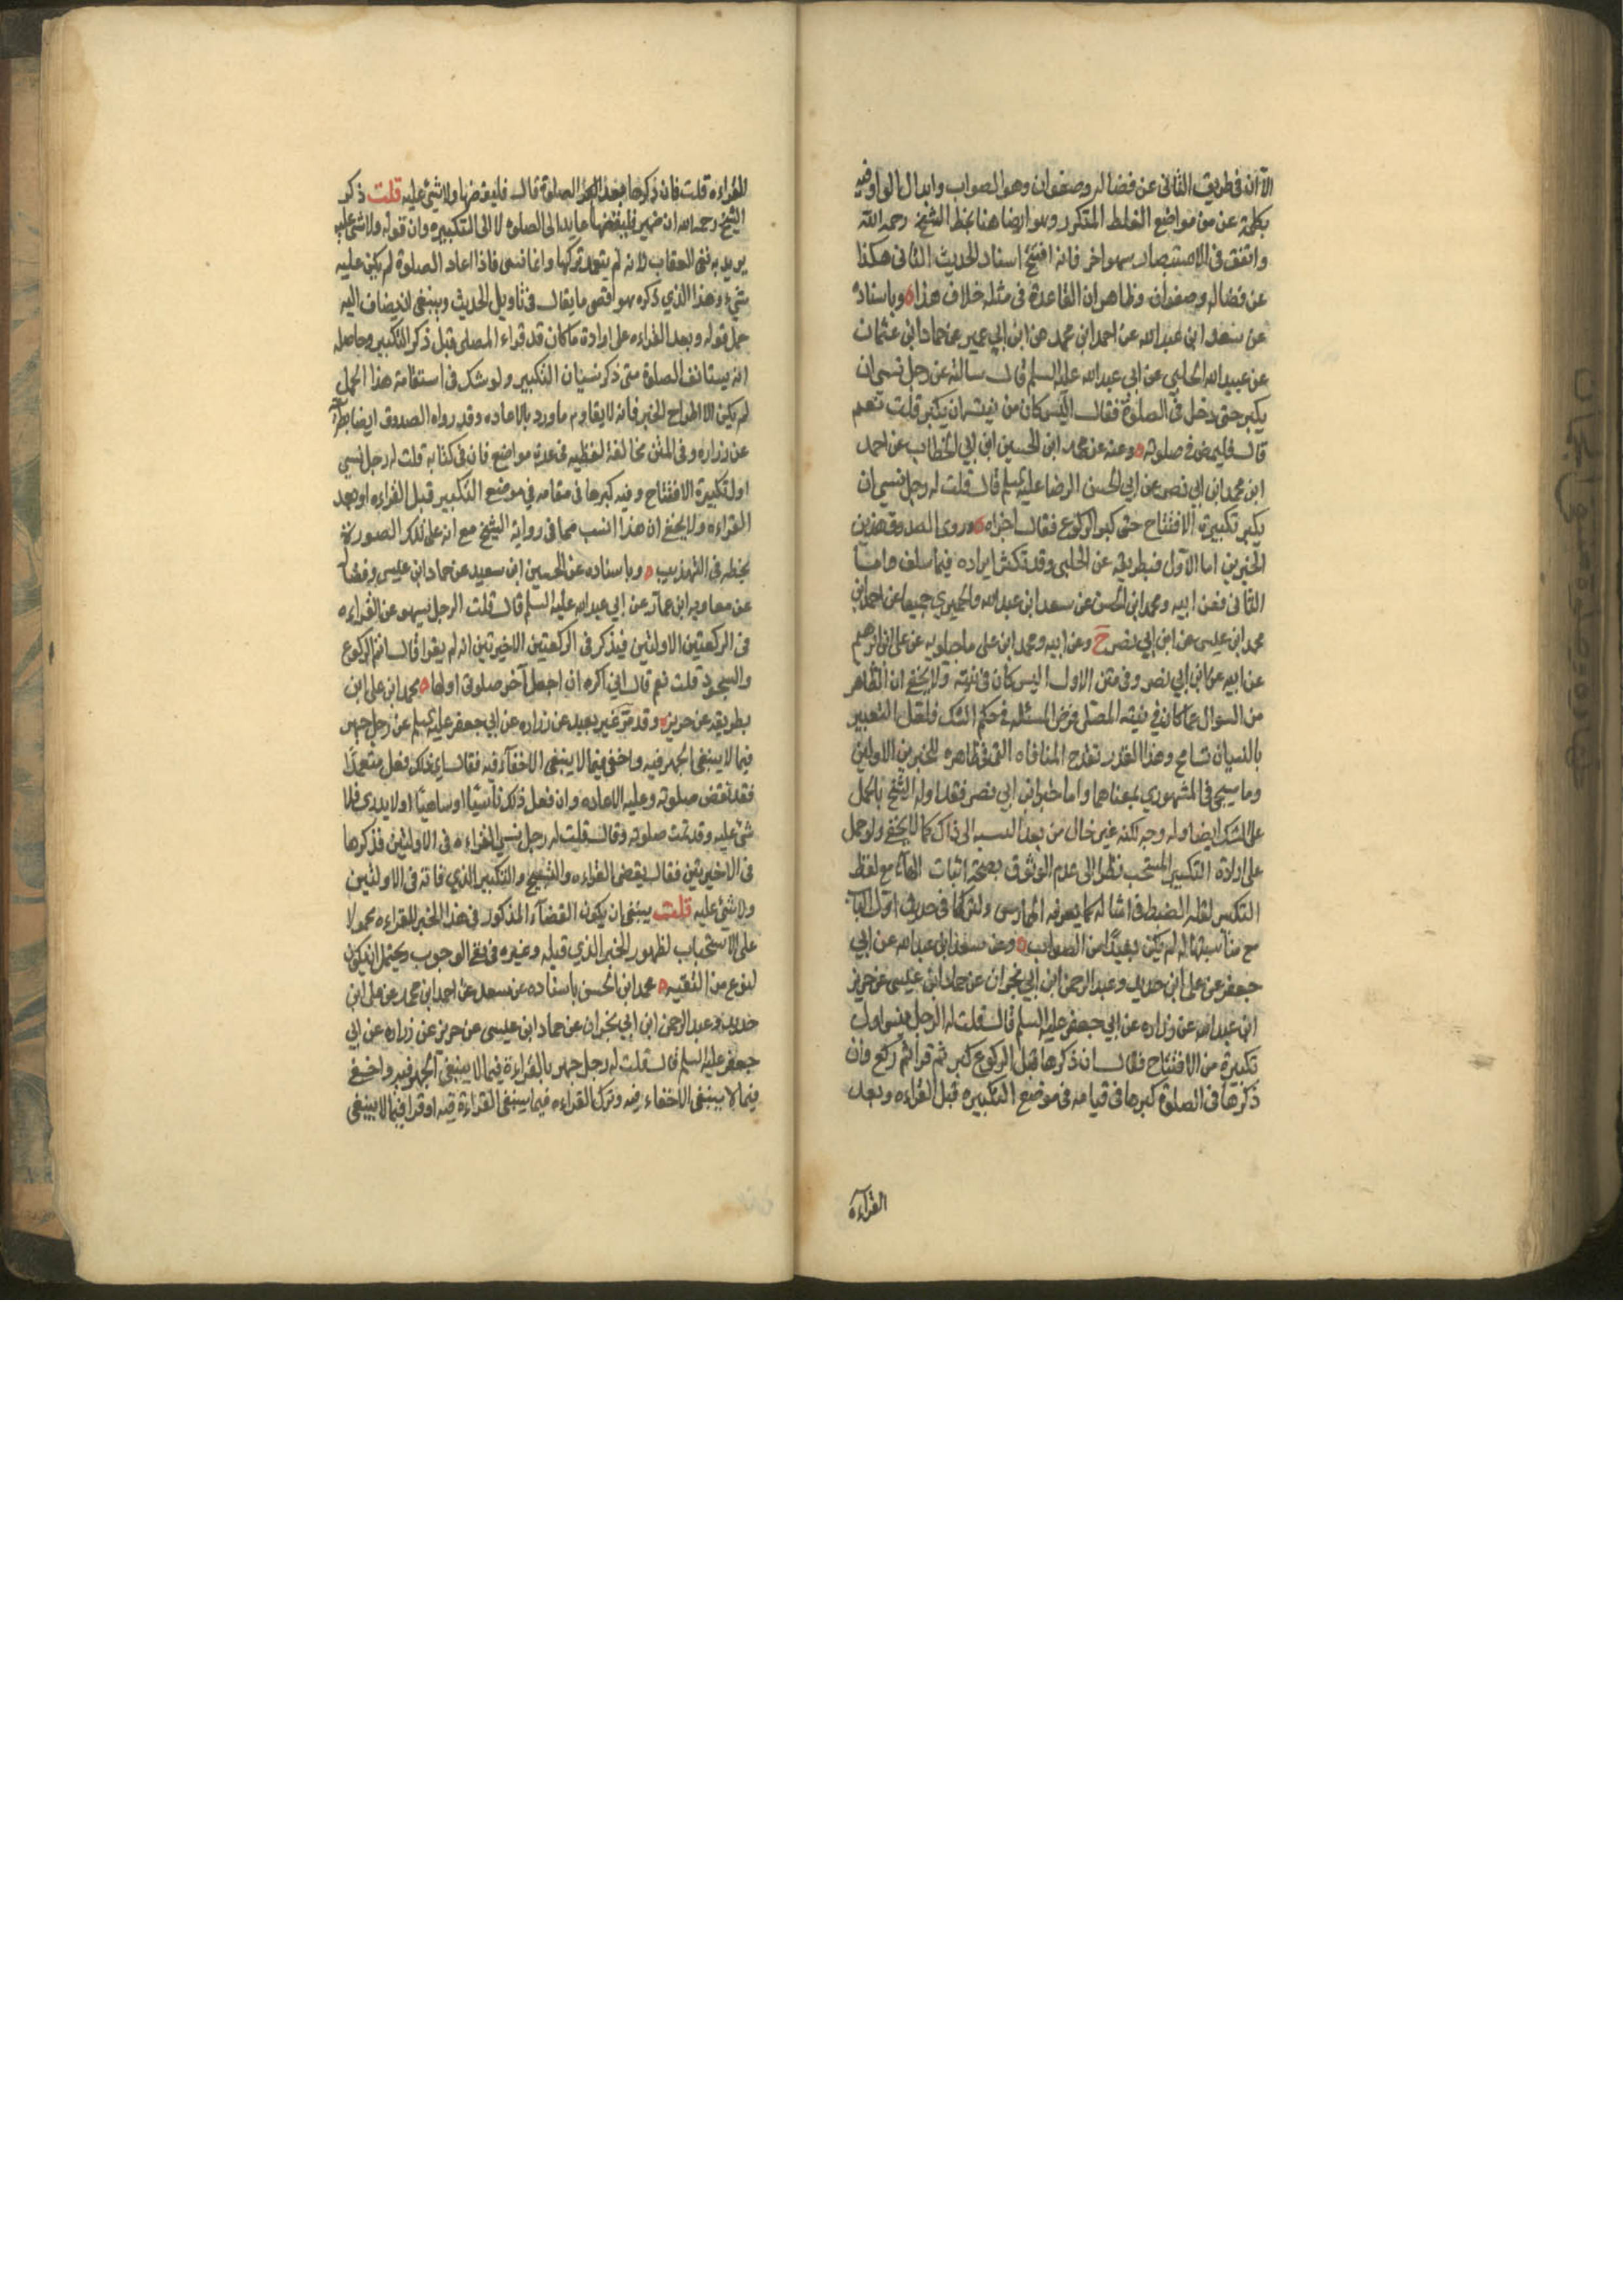 الا انه في طريق الثاني عن فضاله وصفوان وهو الصواب وابدال الواو فيه
بكلمة عن من مواضع الغلط المتكرر وهو ايضا هنا بخط الشيخ رحمه الله
واتفق في الاستبصار سهو اخر فانه افتتح اسناد الحديث الثاني هكذا
عن فضاله وصفوان وظاهر ان القاعدة في مثله خلاف هذا ه وباسناده
عن سعد ابن عبد الله عن احمد ابن محمد عن ابن ابي عمير عن حماد ابن عثمان
عن عبيد الله الحلبي عن ابي عبد الله عليه السلم قال سالته عن رجل نسي ان
يكبر حتى دخل في الصلوة فقال اليس كان من نيته ان يكبر قلت نعم
قال فليمض في صلوته ه وعنه عن محمد ابن الحسين ابن ابي الخطاب عن احمد
ابن محمد ابن ابي نصر عن ابي الحسن الرضا عليه السلم قال قلت له رجل نسي ان
يكبر تكبيرة الافتتاح حتى كبر للركوع فقال اجزاه ه وروى الصدوق هذين
الخبرين اما الاول فبطريقه عن الحلبي وقد تكثر ايراده فيما سلف واما
الثاني فعن ابيه ومحمد ابن الحسن عن سعد ابن عبد الله والحميري جميعا عن احمد ابن
محمد ابن عيسى عن ابن ابي نصر ح وعن ابيه ومحمد ابن علي ماجيلويه عن علي ابن ابرهيم
عن ابيه عن ابن ابي نصر وفي متن الاول اليس كان في نيته ولا يخفى ان الظاهر
من السوال عما كان في نيته المصلي فرض المسئله في حكم الشك فلعل التعبير
بالنسيان تسامح وهذا القدر المنافاه التي في ظاهره للخبرين الاولين
وما سيجئ في المشهوري بمعناهما واما خبر ابن ابي نصر فقد اوله الشيخ بالحمل
على الشك ايضا وله وجه لكنه غير خال من بعد بالنسبه الى ذاك كما لا يخفى ولو حمل
على ارادة التكبير المستحب نظرا الى عدم الوثوق بصحة اثبات الهاء مع لفظ
التكبير لقلة الضبط في امثاله كما يعرفه الممارس ولتركها في حديث اول الباب
مع مناسبتها له لم يكن بعيدا من الصواب ه وعن سعد ابن عبد الله عن ابي
جعفر عن علي ابن حديد وعبد الرحمن ابن ابي نجران عن حماد ابن عيسى عن حريز
ابن عبد الله عن زراره عن ابي جعفر عليه السلم قال قلت له الرجل ينسى اول
تكبيرة من الافتتاح فقال ان ذكرها قبل الركوع كبر ثم قرا ثم ركع وان
ذكرها في الصلوة كبرها في قيامه في موضع التكبيره قبل القراءه وبعد
القراءة
للقراءه قلت فان ذكرها بعد الصلوة قال فليقضها ولا شئ عليه قلت ذكر
الشيخ رحمه الله ان ضمير فليقضها عايد الى الصلوه لا الى التكبيره وان قوله ولا شئ عليه
يريد به نفي العقاب لانه لم يتعمد تركها وانما نسي فاذا اعاد الصلوة لم يكن عليه
شيء وهذا الذي ذكره هو اقصى ما يقال في تاويل الحديث وينبغي ان يضاف اليه
حمل قوله وبعد القراءه على ارادة ما كان قد قراءه المصلي قبل ذكر التكبير وحاصله
انه يستانف الصلوة متى ذكر نسيان التكبير ولو شك في استقامة هذا الحمل
لم يكن الا اطراح الخبر فانه لا يقاوم ما ورد بالاعاده وقد رواه الصدوق ايضا بطريقه
عن زراره وفي المتن مخالفة لفظيه في عدة مواضع فان في كتابه قلت له رجل نسي
اول تكبيرة الافتتاح وفيه كبرها في مقامه في موضع التكبير قبل القراءه او بعد
القراءه ولا يخفى ان هذا انسب مما في رواية الشيخ مع انه على تلك الصورة
بخطه في التهذيب ه وباسناده عن الحسين ابن سعيد عن حماد ابن عيسى وفضاله
عن معاويه ابن عمار عن ابي عبد الله عليه السلم قال قلت الرجل يسهو عن القراءه
في الركعتين الاولتين فيذكر في الركعتين الاخيرتين انه لم يقرا قال اتم الركوع
والسجود قلت نعم قال اني اكره ان اجعل آخر صلوتي اولها ه محمد ابن علي ابن
بطريقه عن حريز وقد مر غير بعيد عن زراره عن ابي جعفر عليه السلم عن رجل جهر
فيما لا ينبغي الجهر فيه واخفى فيما لا ينبغي الاخفاء فيه فقال اي ذلك فعل متعمدا
فقد نقض صلوته وعليه الاعاده وان فعل ذلك ناسيا او ساهيا او لا يدري فلا
شئ عليه وقد تمت صلوته وقال قلت له رجل نسي القراءه في الاولتين فذكرها
في الاخيرتين فقال يقضي القراءه والتكبير والتسبيح الذي فاته في الاولتين
ولا شئ عليه قلت ينبغي ان يكون القضاء المذكور في هذا الخبر للقراءه محمولا
على الاستحباب لظهور الخبر الذي قبله وغيره في نفي الوجوب ويحتمل ان يكون
لنوع من التقيه ه محمد ابن الحسن باسناده عن سعد عن احمد ابن محمد عن علي ابن
حديد وعبد الرحمن ابن ابي نجران عن حماد ابن عيسى عن حريز عن زراره عن ابي
جعفر عليه السلم قال قلت له رجل جهر بالقراءة فيما لا ينبغي الجهر فيه واخفى
فيما لا ينبغي الاخفاء فيه وترك القراءه فيما ينبغي القراءة فيه او قرا فيما لا ينبغي